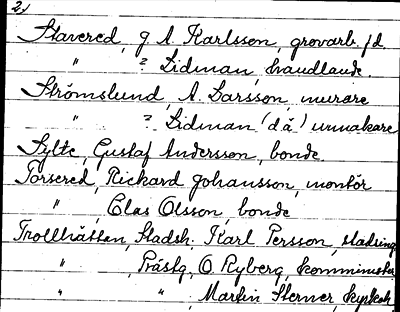 2.)
Stavered, G A. Karlsson, grovarb. f d
" ? Lidman, handlande.
Strömslund, A. Larsson, murare
" ? Lidman (d ä) urmakare
Sylte, Gustaf Andersson, bonde.
Torsered, Rickard Johansson, montör
" Clas Olsson, bonde
Trollhättan, Stadsh. Karl Persson,
" Prästg. O Ryberg, komminister
" " Martin Sterner, kyrkoh